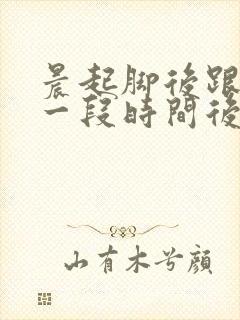 晨起脚後跟
一段時間後
山有木兮顏